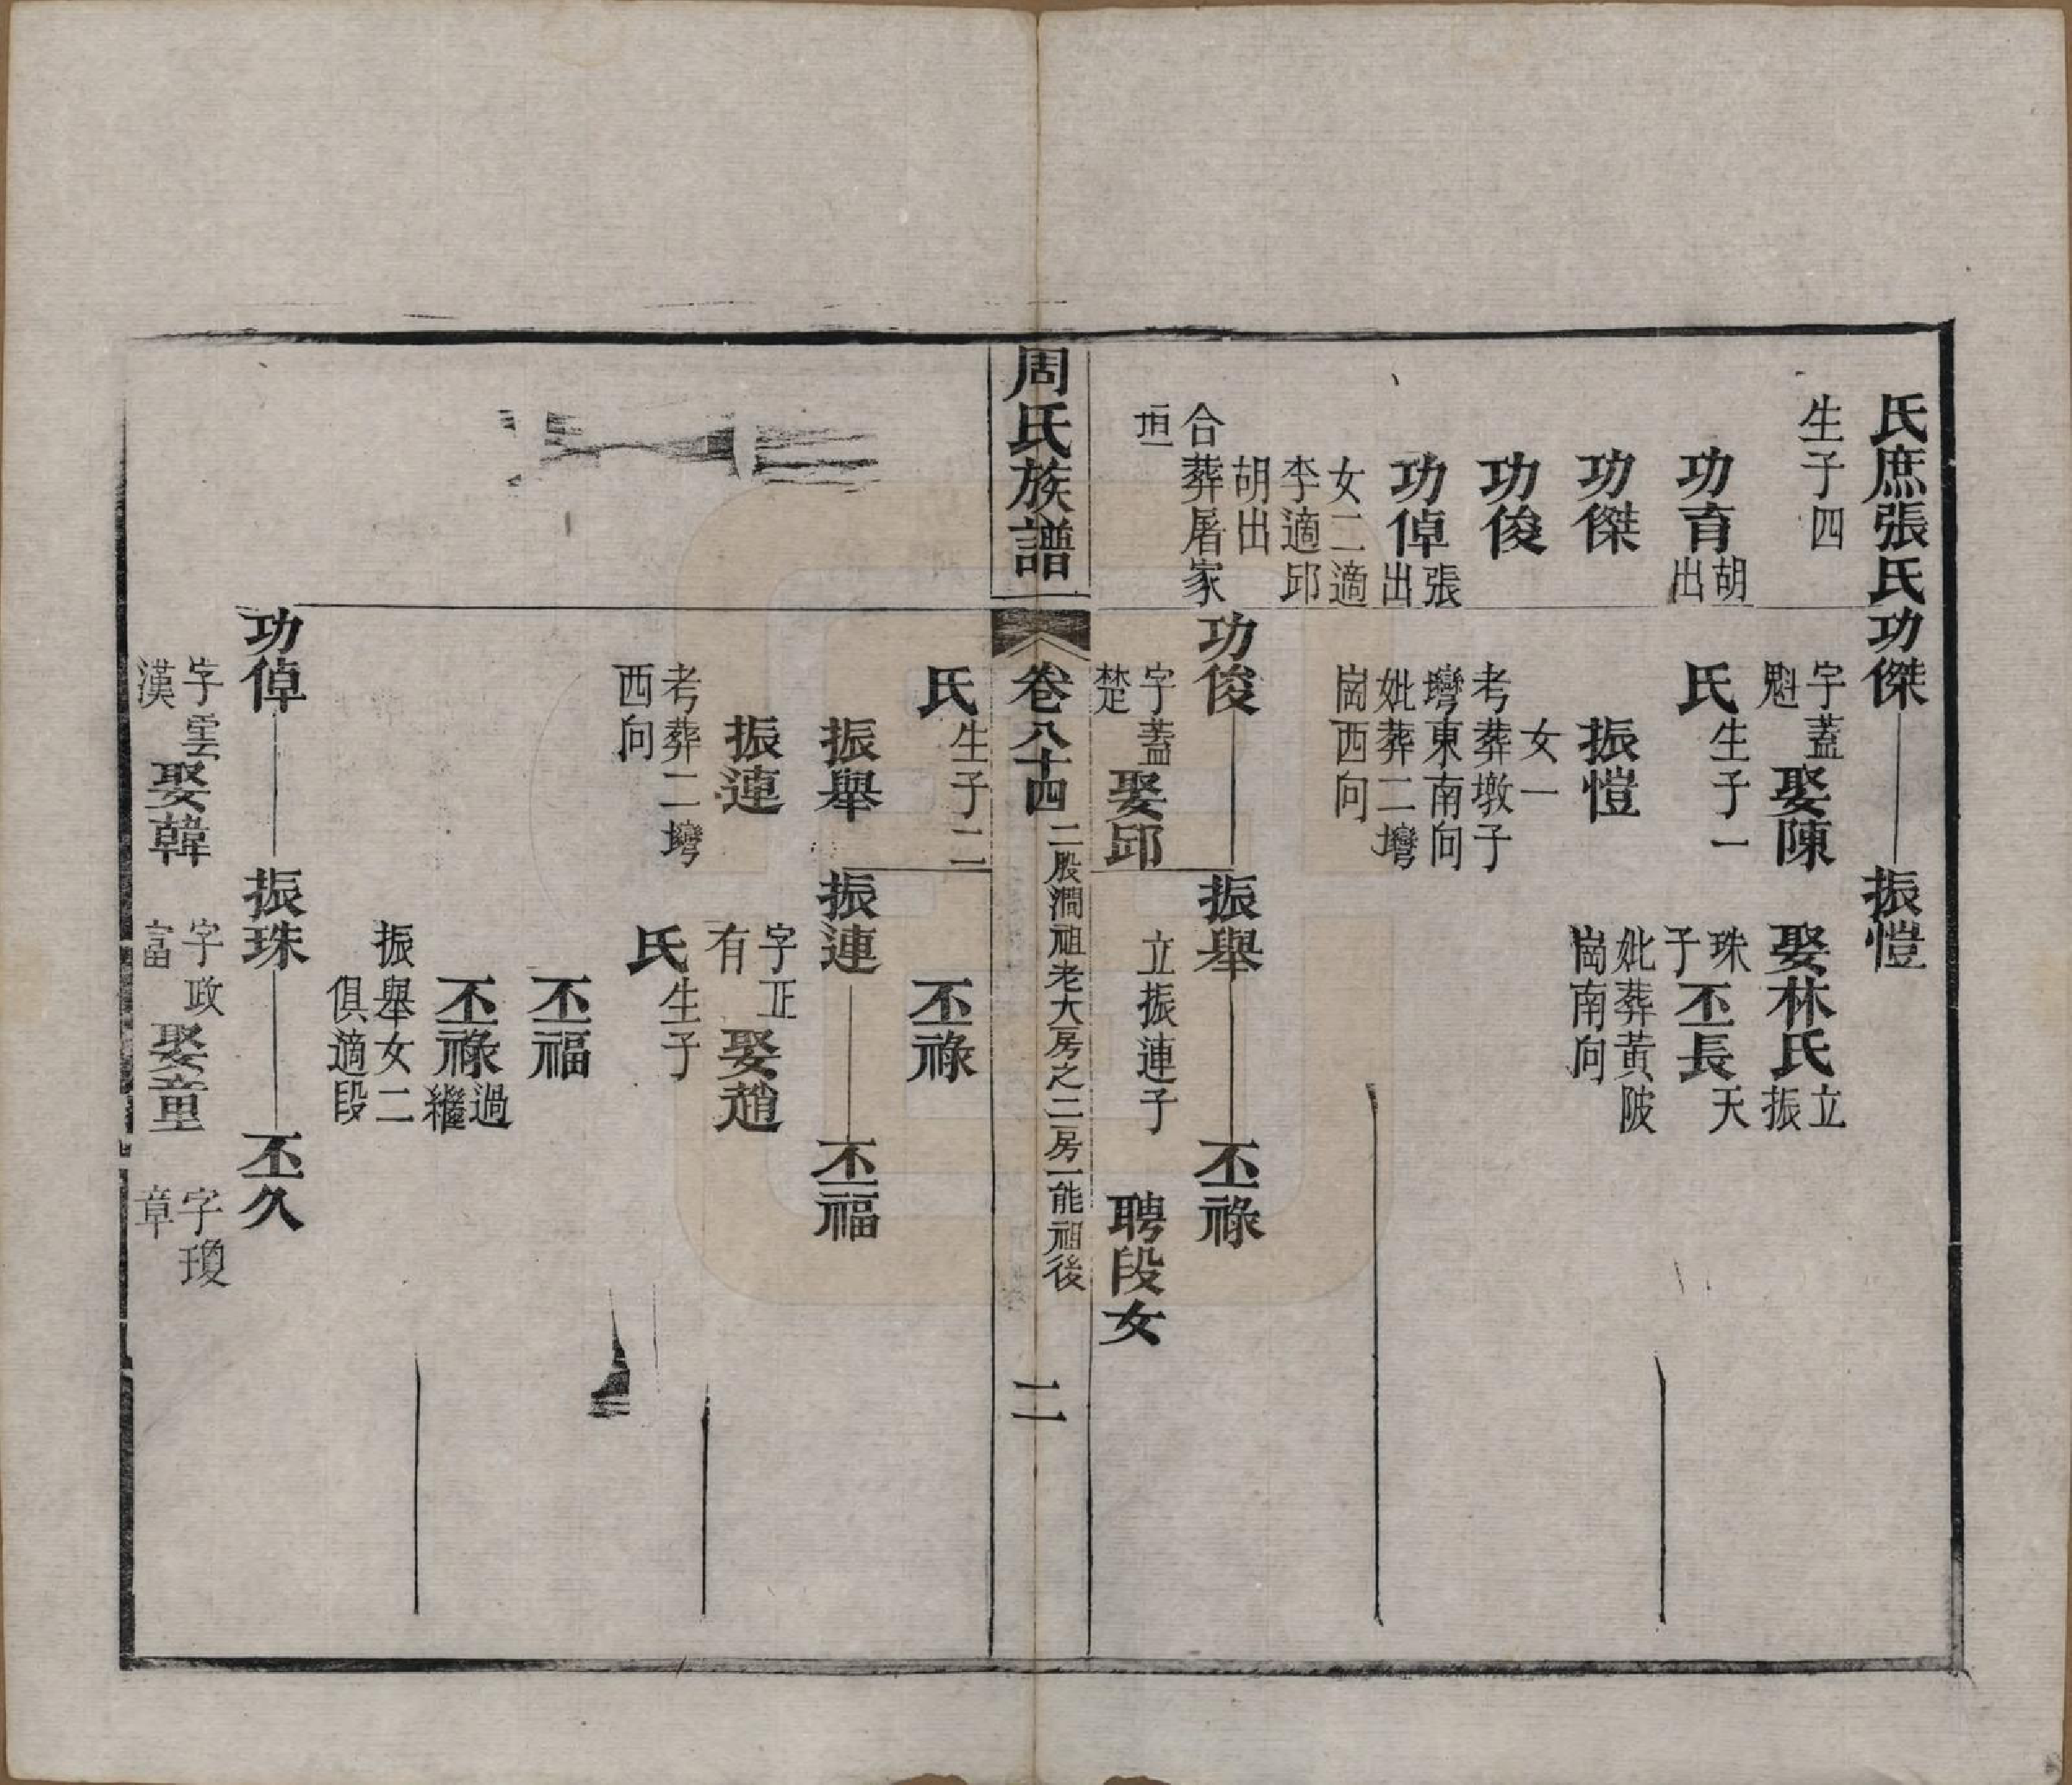 氏庶張氏
生子四
功育
胡
出
功傑
功俊
功倬
張
出
女二適
李適邱
胡出
合葬屠家
垣
功傑
字蓋
魁
娶陳
氏
生子一
振愷
女一
考葬墩子
壪東南向
妣葬二壪
崗西向
振愷
娶林氏
立
振
珠
子
丕長
天
妣葬黃陂
崗南向
功俊
字蓋
楚
娶邱
振舉
立振連子
丕祿
聘段女
周氏族譜
卷八十四
二股澗祖老大房之二房一能祖後
二
氏
生子二
振舉
振連
考葬二壪
西向
丕祿
振連
字正
有
娶趙
氏
生子
丕福
丕祿
過
繼
振舉女二
俱適段
丕福
功倬
字雲
漢
娶韓
振珠
字政
富
娶童
丕久
字瓊
章